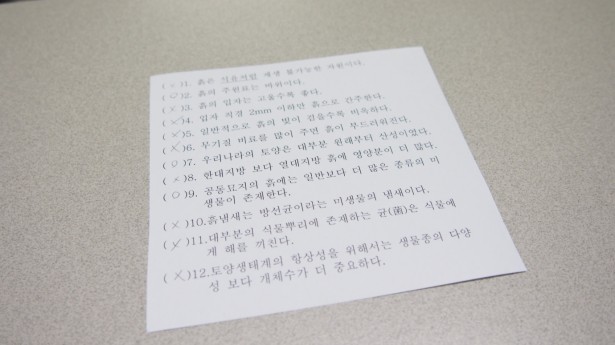 (×)1. 흙은 석유처럼 재생 불가능한 자원이다.
(○)2. 흙의 주원료는 바위이다.
(×)3. 흙의 입자는 고울수록 좋다.
(×)4. 입자 직경 2mm 이하만 흙으로 간주한다.
(×)5. 일반적으로 흙의 빛이 검을수록 비옥하다.
(×)6. 무기질 비료를 많이 주면 흙이 부드러워진다.
(○)7. 우리나라의 토양은 대부분 원래부터 산성이었다.
(×)8. 한대지방 보다 열대지방 흙에 영양분이 더 많다.
(○)9. 공동묘지의 흙에는 일반보다 더 많은 종류의 미
생물이 존재한다.
(×)10.흙냄새는 방선균이라는 미생물의 냄새이다.
(×)11.대부분의 식물뿌리에 존재하는 균(菌)은 식물에
게 해를 끼친다.
(×)12.토양생태계의 항상성을 위해서는 생물종의 다양
성 보다 개체수가 더 중요하다.